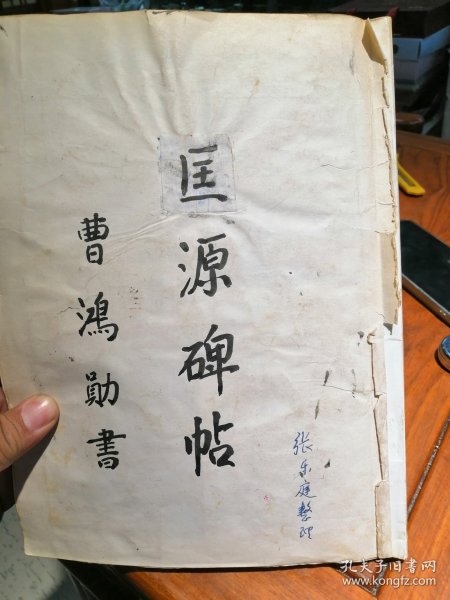 匡源碑帖
曹鴻勛書
张乐庭整理
孔夫子旧书网
www.kongfz.com